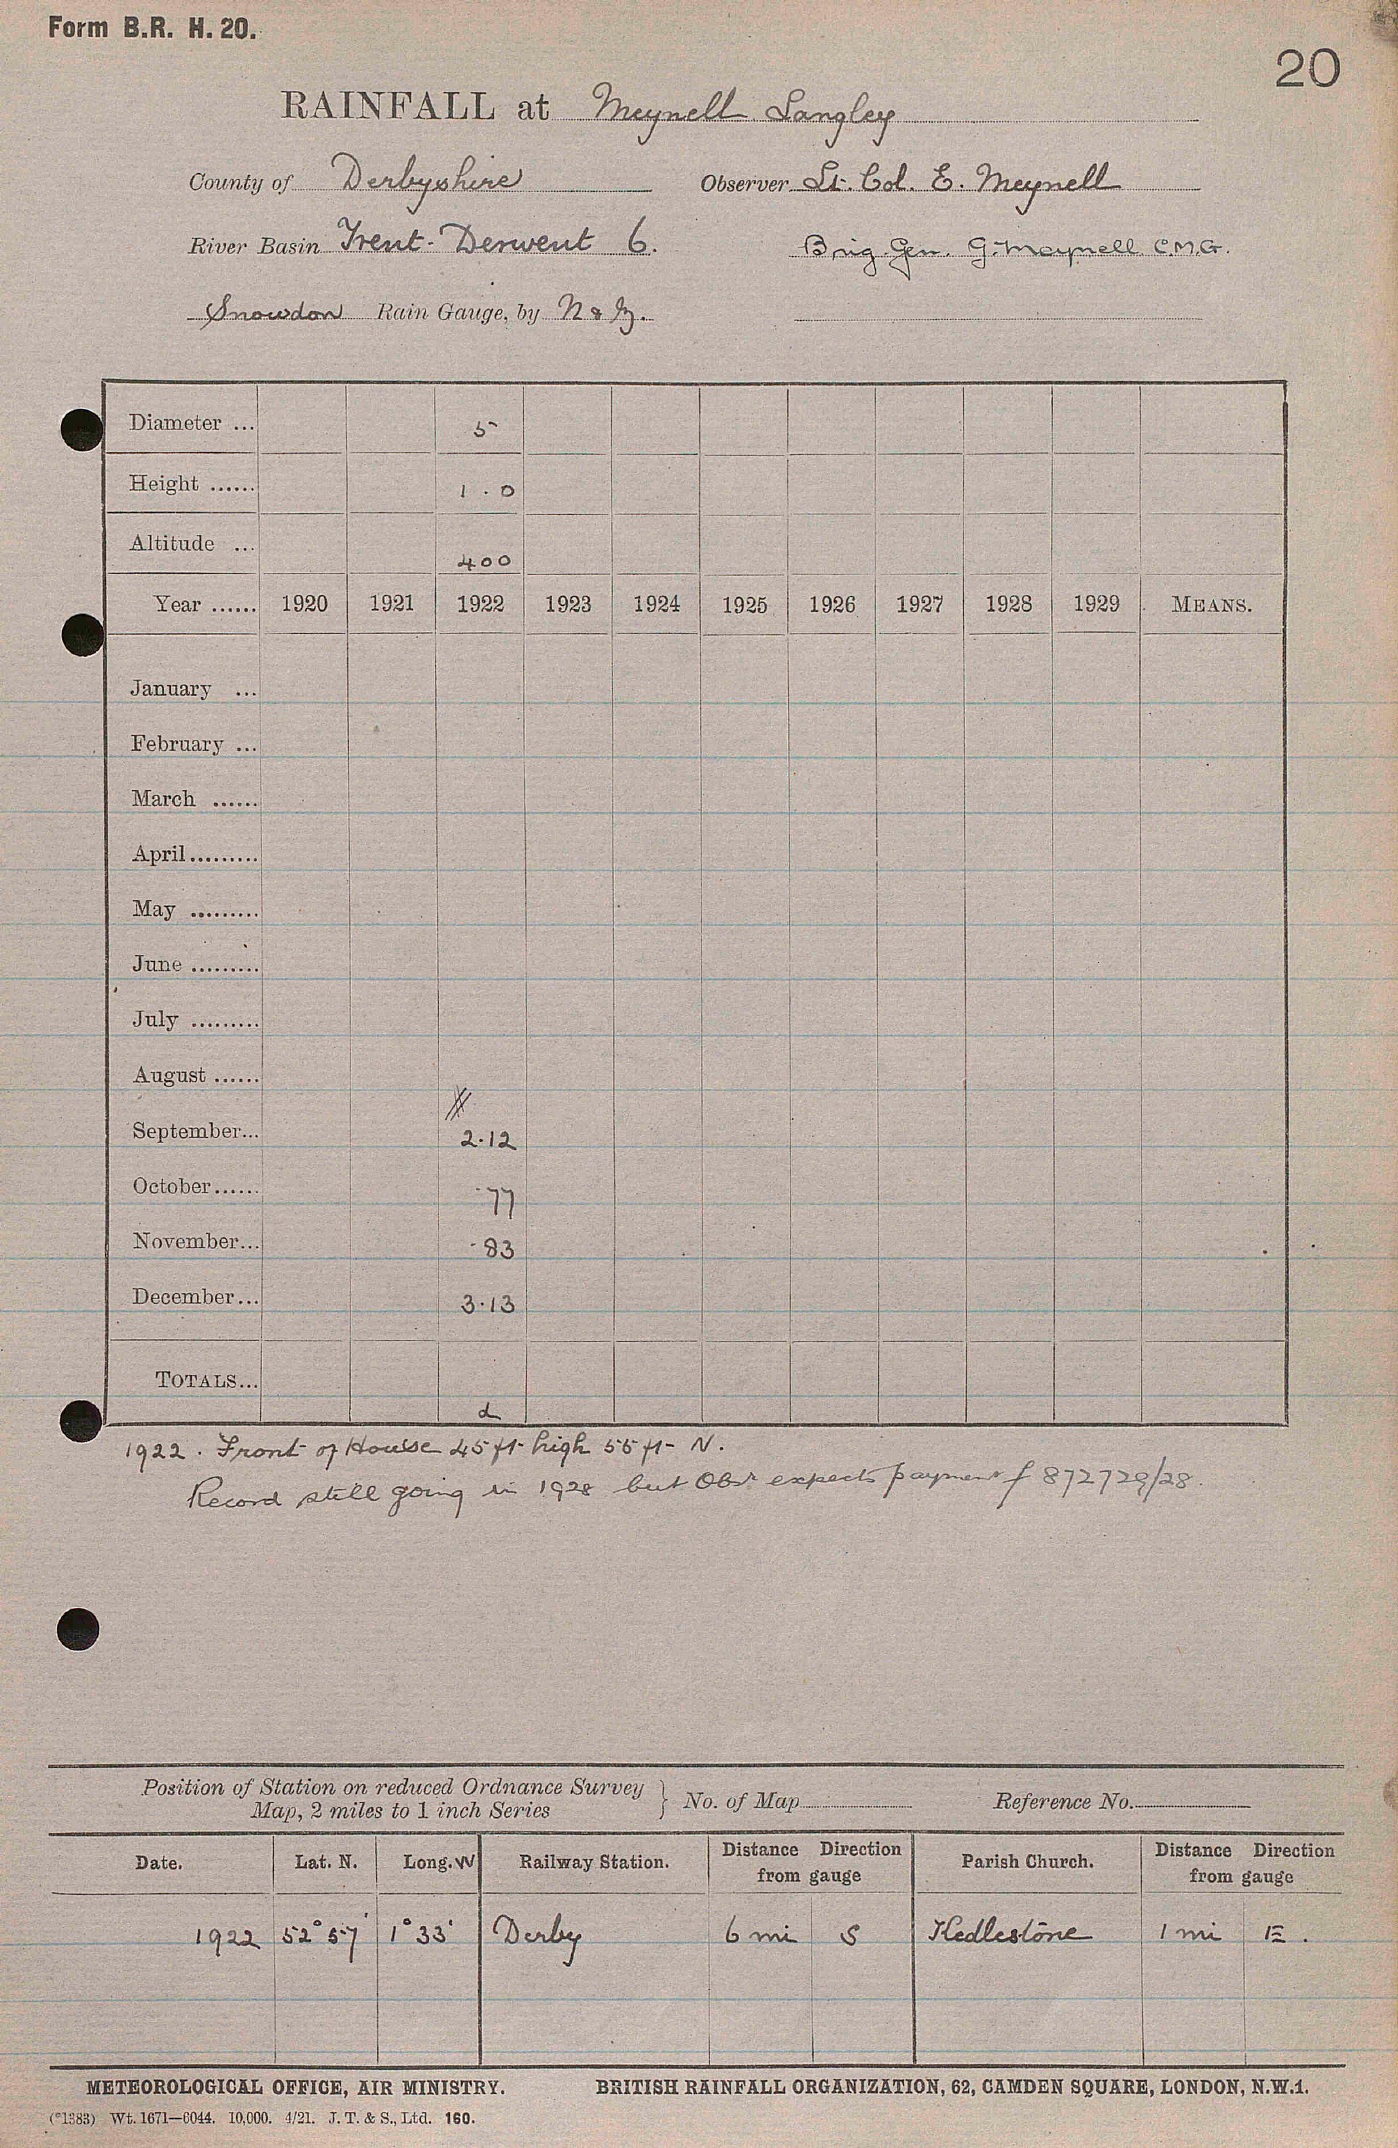 Form B.R. H. 20.
20
RAINFALL at Meynell Langley
County of Derbyshire Observer Lt. Col. E. Meynell
River Basin Trent-Derwent 6. Brig. Gen. G. Meynell C.M.G.
Snowdon Rain Gauge, by N & Z.
Diameter ... 5
Height ...... 1.0
Altitude ... 400
Year ...... 1920 1921 1922 1923 1924 1925 1926 1927 1928 1929 MEANS.
January ...
February ...
March ......
April.........
May .........
June .........
July .........
August ......
September... 2.12
October...... .77
November... .83
December... 3.13
TOTALS...
d
1922. Front of House 45 ft high 55 ft N.
Record still going in 1928 but Obsr expects payment f 872729/28.
Position of Station on reduced Ordnance Survey
Map, 2 miles to 1 inch Series } No. of Map Reference No.
Date. Lat. N. Long. W Railway Station. Distance Direction from gauge Parish Church. Distance Direction from gauge
1922 52° 57' 1° 33' Derby 6 mi S Kedlestone 1 mi E.
METEOROLOGICAL OFFICE, AIR MINISTRY. BRITISH RAINFALL ORGANIZATION, 62, CAMDEN SQUARE, LONDON, N.W.1.
(*1383) Wt. 1671—6044. 10,000. 4/21. J. T. & S., Ltd. 160.